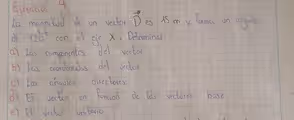 Ejercicio 4
La magnitud de un vector D es 15 m y forma un ángulo
de 120° con el eje X. Determinar
a) Las componentes del vector
b) Las coordenadas del vector
c) Los ángulos directores
d) El vector en función de los vectores base
e) El vector unitario